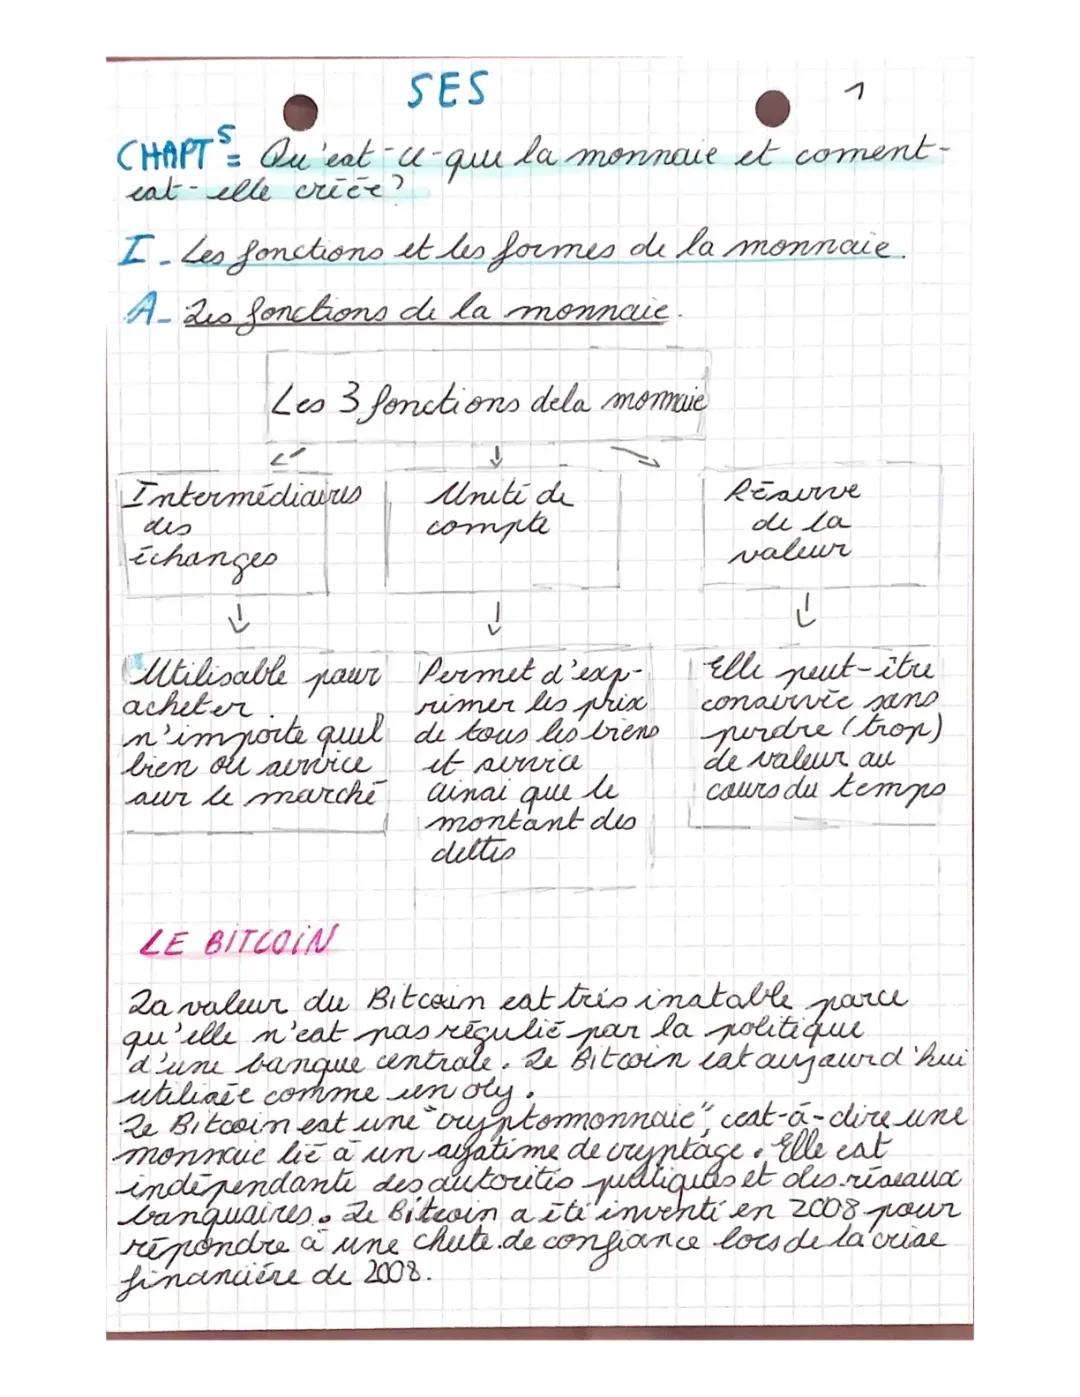 SES
1
CHAPT 5 = Qu'est-ce-que la monnaie et coment-
est-elle créée?
I - Les fonctions et les formes de la monnaie.
A - Les fonctions de la monnaie.
Les 3 fonctions de la monnaie
Intermédiaires
des
échanges
Unité de
compte
Réserve
de la
valeur
Utilisable pour
acheter
n'importe quel
bien ou service
sur le marché
Permet d'exp-
rimer les prix
de tous les biens
et service
ainsi que le
montant des
dettes
Elle peut-être
conservée sans
perdre (trop)
de valeur au
cours du temps
LE BITCOIN
La valeur du Bitcoin est très instable parce
qu'elle n'est pas régulié par la politique
d'une banque centrale. Le Bitcoin est aujourd'hui
utilisée comme un
Le Bitcoin est une "cryptomonnaie", cest-à-dire une
monnaie lié à un système de cryptage. Elle est
indépendante des autorités publiques et des réseaux
banquaires. Le Bitcoin a été inventé en 2008 pour
répondre à une chute de confiance lors de la crise
financière de 2008.